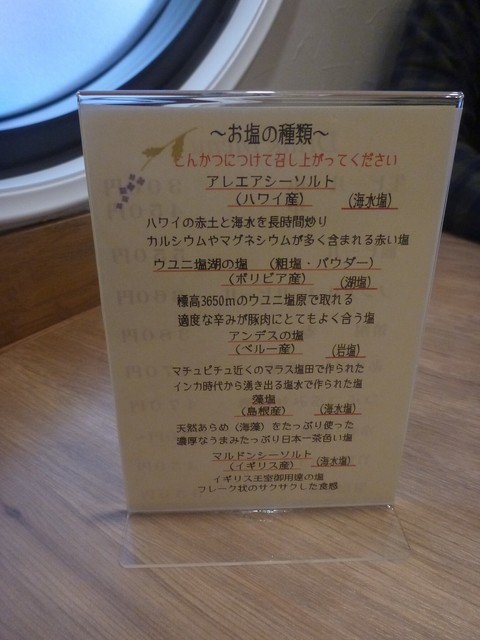 ～お塩の種類～
とんかつにつけて召し上がってください
アレエアシーソルト
（ハワイ産） （海水塩）
ハワイの赤土と海水を長時間炒り
カルシウムやマグネシウムが多く含まれる赤い塩
ウユニ塩湖の塩 （粗塩・パウダー）
（ボリビア産） （湖塩）
標高3650mのウユニ塩原で取れる
適度な辛みが豚肉にとてもよく合う塩
アンデスの塩
（ペルー産） （岩塩）
マチュピチュ近くのマラス塩田で作られた
インカ時代から湧き出る塩水で作られた塩
藻塩
（島根産） （海水塩）
天然あらめ（海藻）をたっぷり使った
濃厚なうまみたっぷり日本一茶色い塩
マルドンシーソルト
（イギリス産） （海水塩）
イギリス王室御用達の塩
フレーク状のサクサクした食感